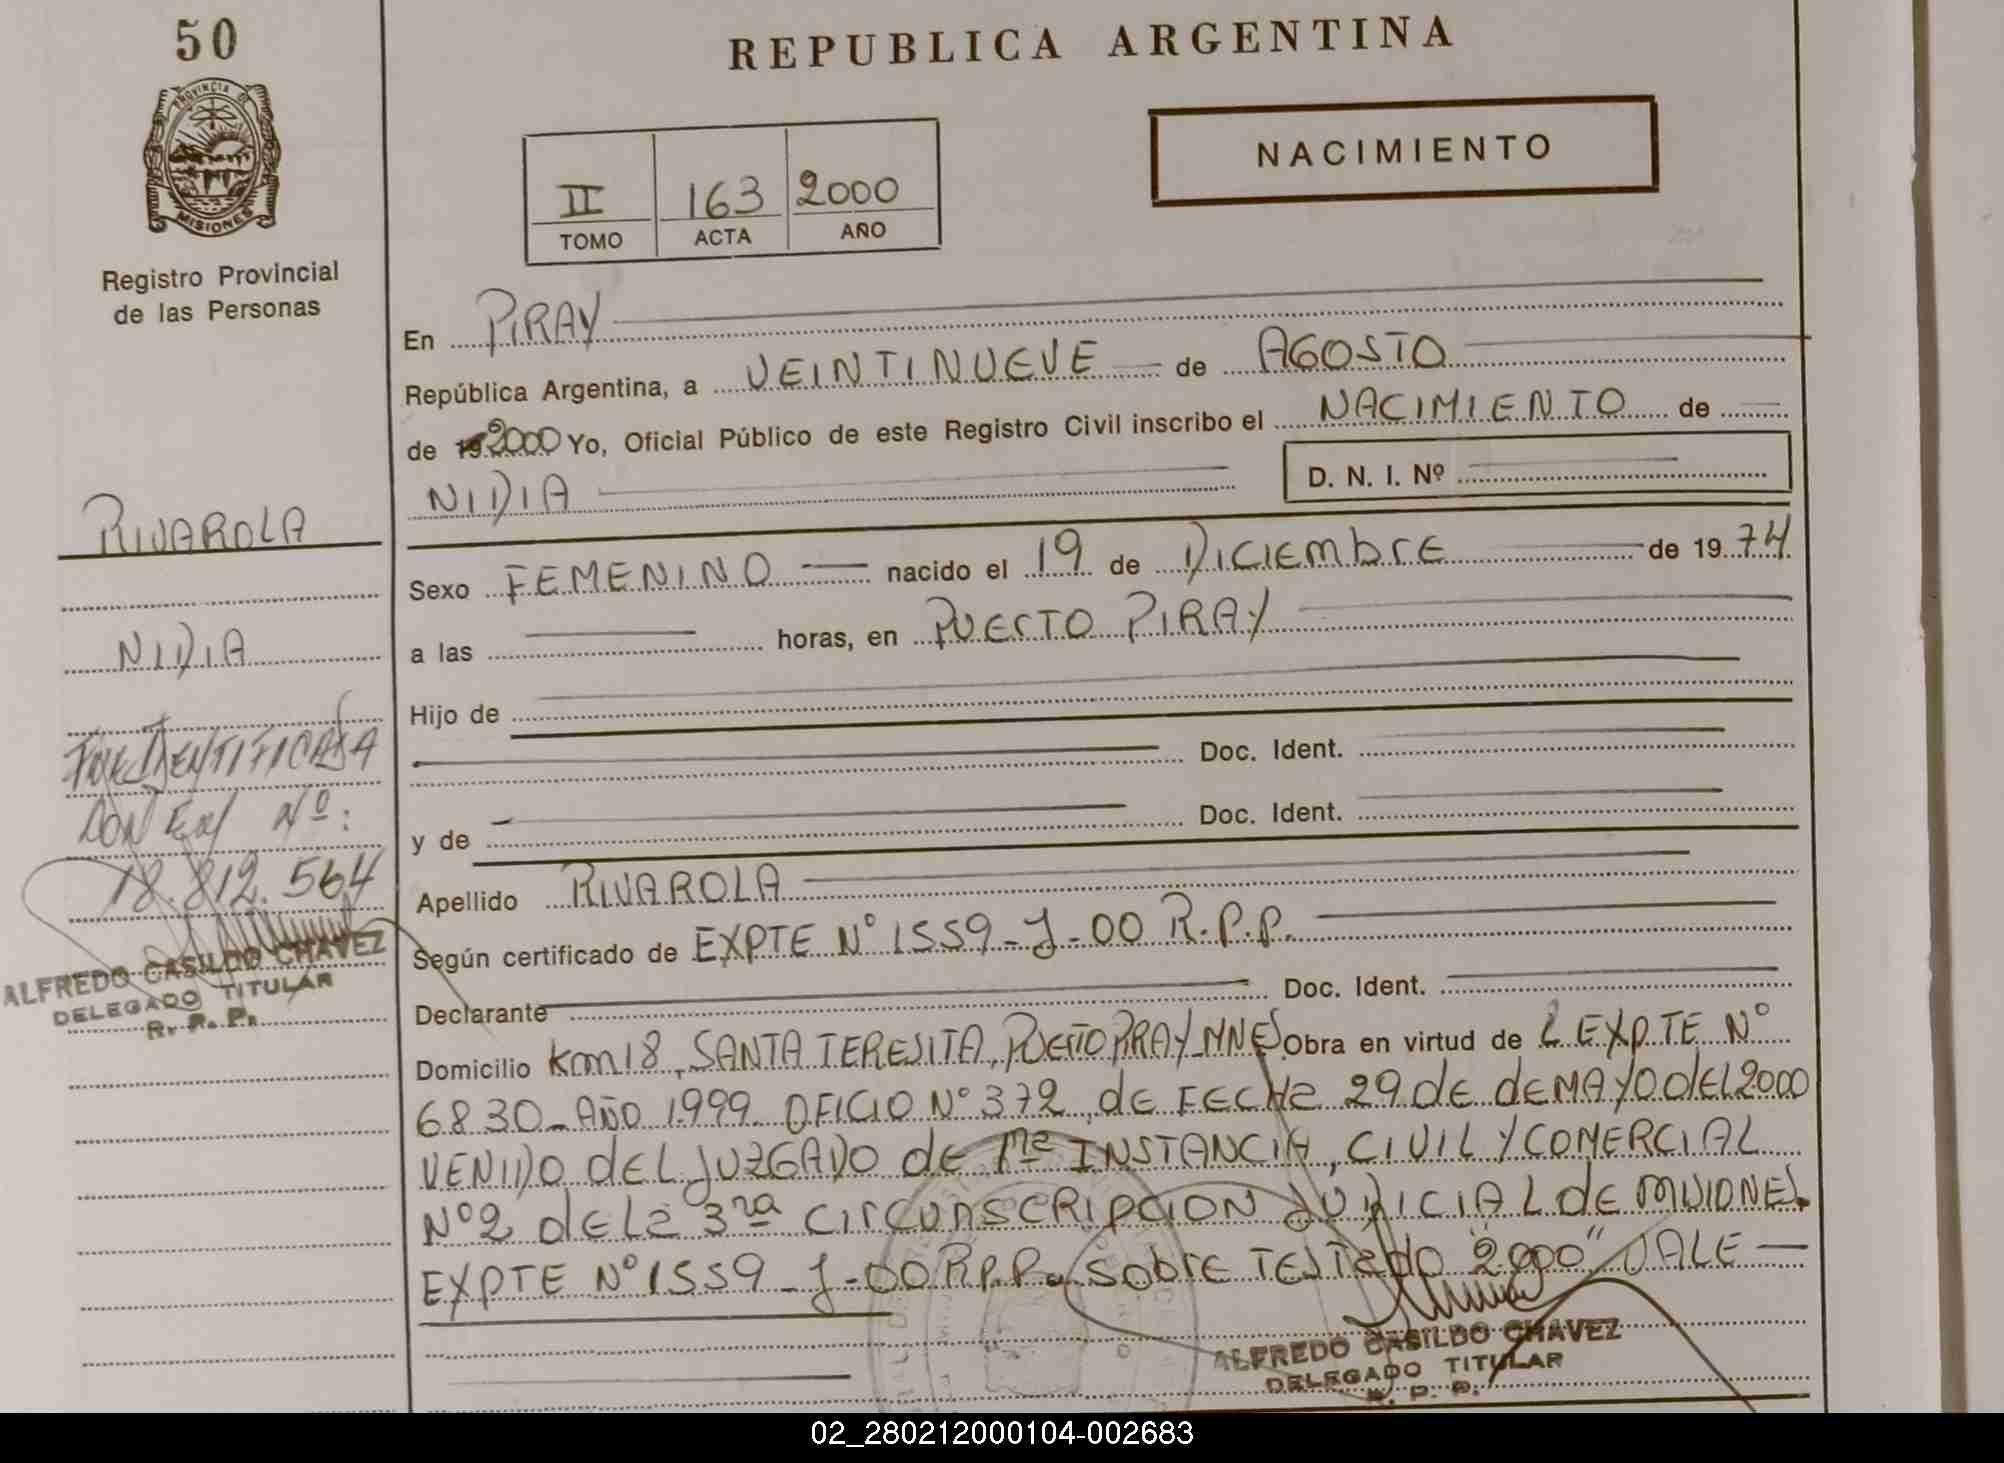 50
PROVINCIA DE
MISIONES
Registro Provincial
de las Personas
REPUBLICA ARGENTINA
NACIMIENTO
II 163 2000
TOMO ACTA AÑO
En PIRAY
República Argentina, a VEINTINUEVE de AGOSTO
de 19 2000 Yo, Oficial Público de este Registro Civil inscribo el NACIMIENTO de
NIDIA D. N. I. Nº
RIVAROLA
NIDIA
FUE IDENTIFICADA
CON Nº:
18.812.564
ALFREDO CASILDO CHAVEZ
DELEGADO TITULAR
R. P. P.
Sexo FEMENINO nacido el 19 de DICIEMBRE de 1974
a las horas, en PUERTO PIRAY
Hijo de
Doc. Ident.
y de Doc. Ident.
Apellido RIVAROLA
Según certificado de EXPTE Nº 1559-J-00 R.P.P.
Declarante Doc. Ident.
Domicilio Km 18, SANTA TERESITA, PUERTO PIRAY MNES Obra en virtud de EXPTE Nº
6830-AÑO 1999. OFICIO Nº 372, de FECHA 29 de de MAYO del 2000
VENIDO del JUZGADO de 1ra INSTANCIA, CIVIL Y COMERCIAL
Nº 2 de la 3ra CIRCUNSCRIPCION JUDICIAL de MISIONES.
EXPTE Nº 1559-J-00 R.P.P. Sobre TESTADO "2000" VALE
ALFREDO CASILDO CHAVEZ
DELEGADO TITULAR
R. P. P.
02_280212000104-002683